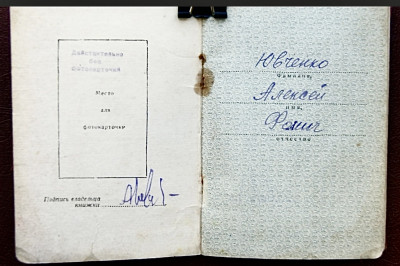 Действительно
без
фотокарточки
Место
для
фотокарточки
Подпись владельца
книжки
Ювченко
фамилия,
Алексей
имя,
Фомич
отчество